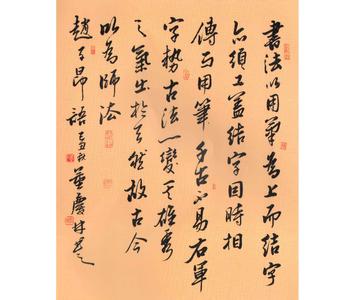 書法以用筆為上而結字
亦須工蓋結字因時相
傳而用筆千古不易右軍
字勢古法一變其雄秀
之氣出於天然故古今
以為師法
趙子昂語 丑秋 董慶